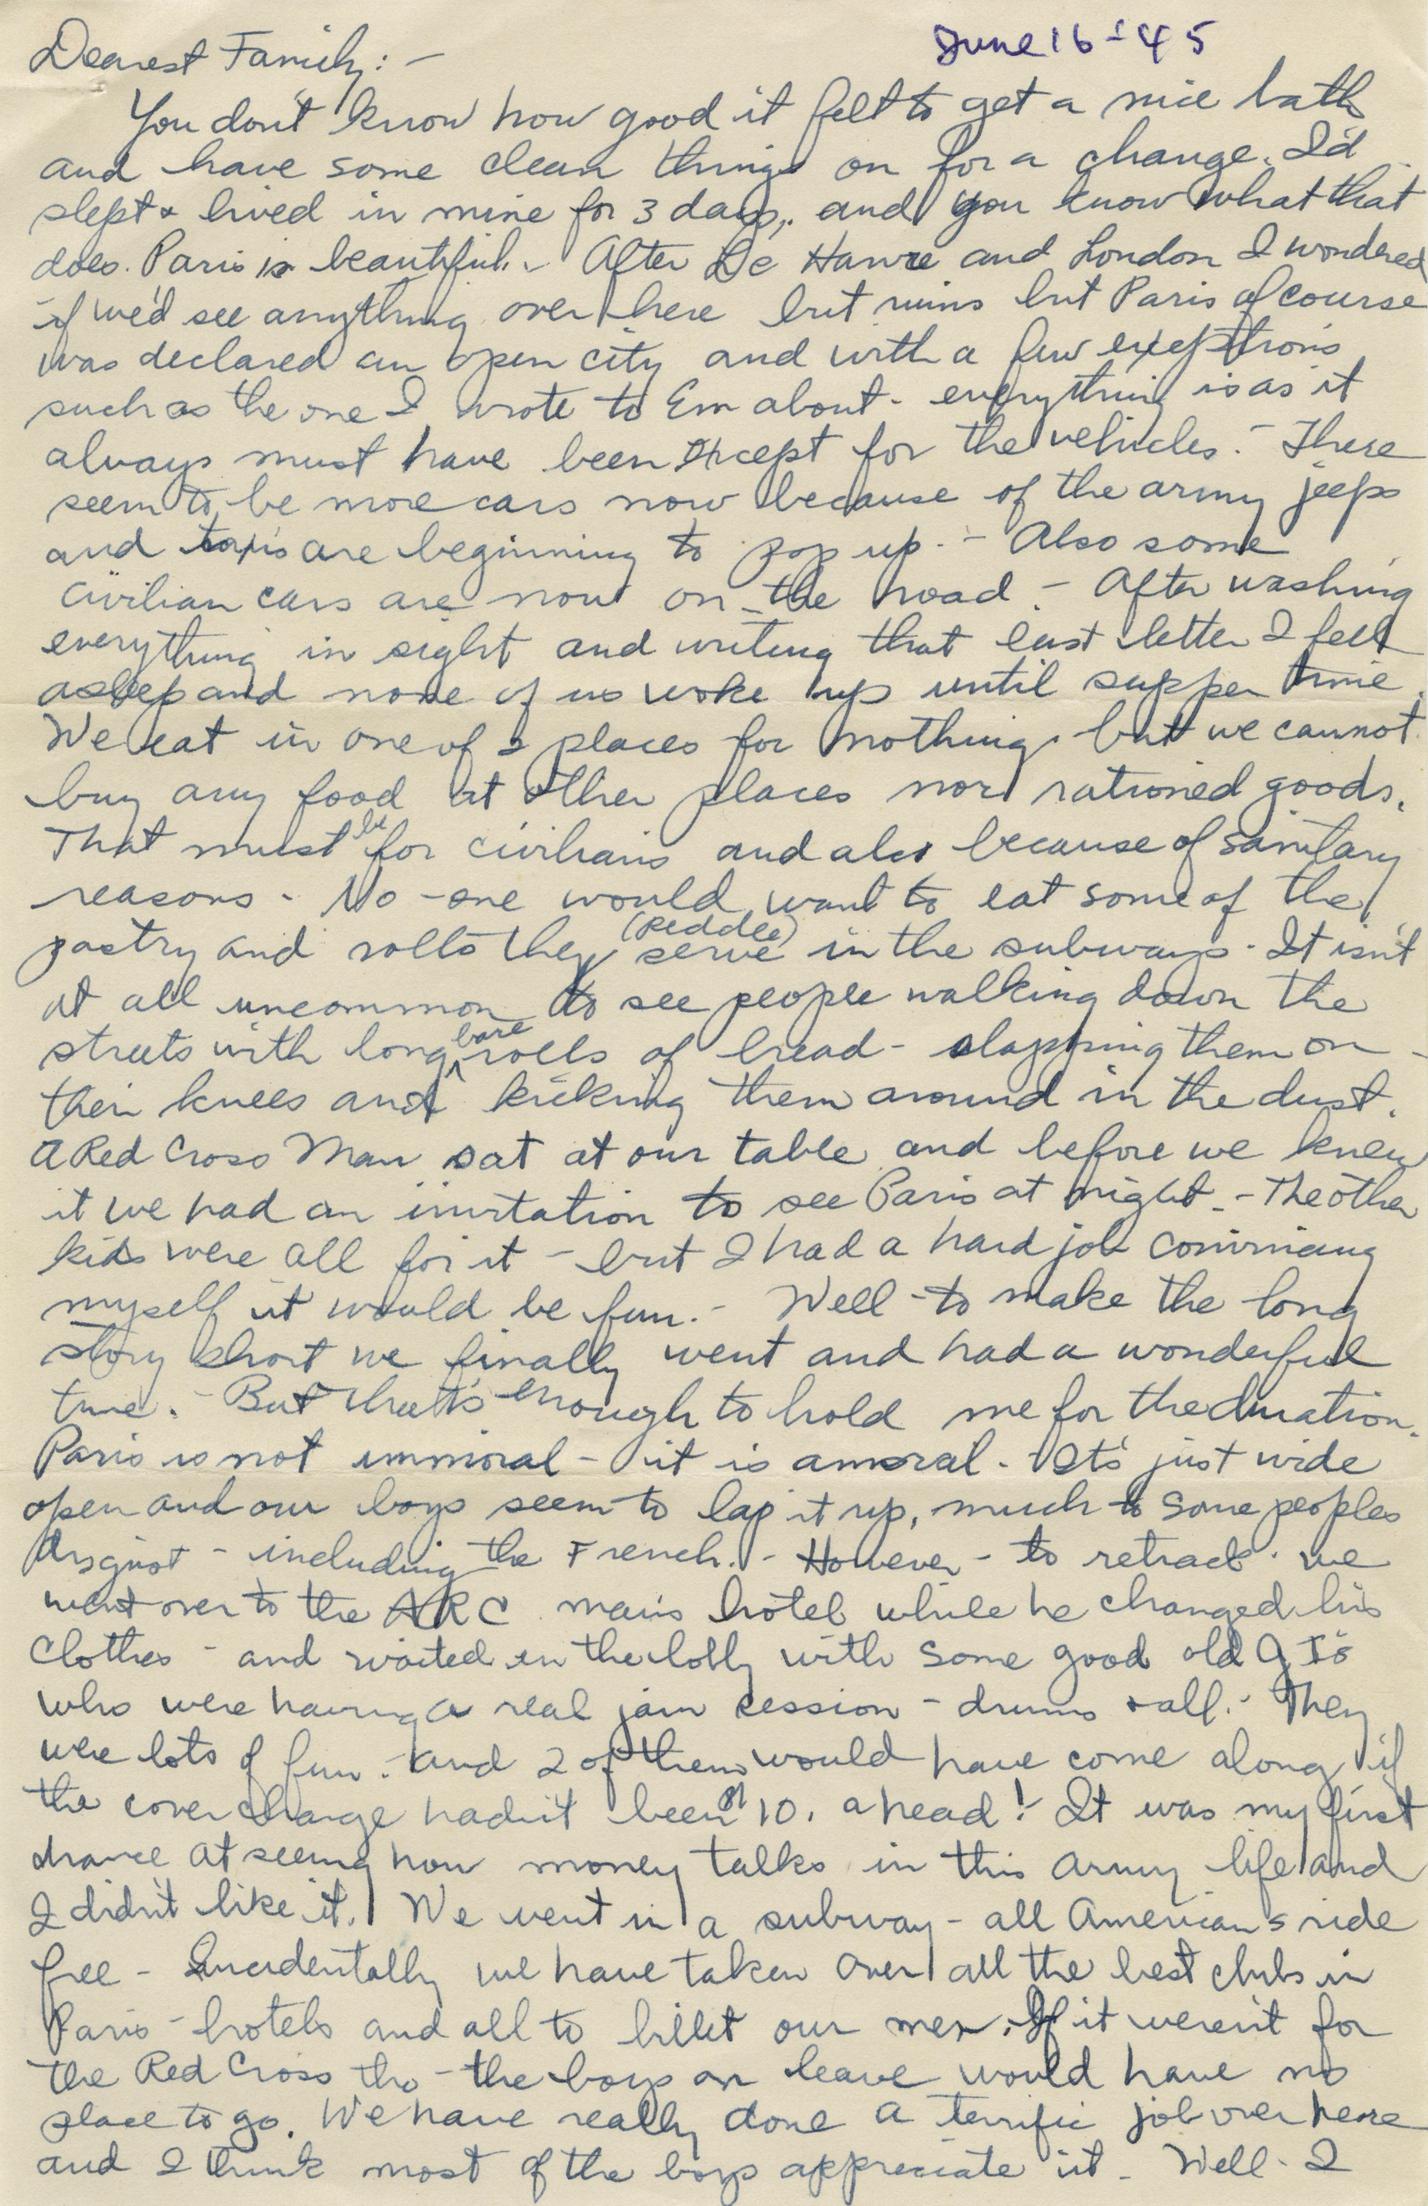 June 16 - 45
Dearest Family: -
You don't know how good it felt to get a nice bath
and have some clean things on for a change. I'd
slept & lived in mine for 3 days, and you know what that
does. Paris is beautiful. - After Le Havre and London I wondered
if we'd see anything over here but ruins but Paris of course
was declared an open city and with a few exceptions
such as the one I wrote to Em about - everything is as it
always must have been except for the vehicles. - There
seem to be more cars now because of the army jeeps
and taxi's are beginning to pop up. - Also some
civilian cars are now on the road - After washing
everything in sight and writing that last letter I fell
asleep and none of us woke up until supper time.
We eat in one of 2 places for nothing, but we cannot
buy any food at other places nor rationed goods.
That must be for civilians and also because of sanitary
reasons - No-one would want to eat some of the
pastry and rolls they serve (peddle) in the subways. It isn't
at all uncommon to see people walking down the
streets with long bare rolls of bread - slapping them on -
their knees and kicking them around in the dust.
A Red Cross Man sat at our table and before we knew
it we had an invitation to see Paris at night - The other
kids were all for it - but I had a hard job convincing
myself it would be fun. - Well - to make the long
story short we finally went and had a wonderful
time. - But that's enough to hold me for the duration.
Paris is not immoral - it is amoral. It's just wide
open and our boys seem to lap it up, much to some peoples
disgust - including the French. - However - to retract - we
went over to the ARC mains hotel while he changed his
clothes - and waited in the lobby with some good old G I's
who were having a real jam session - drums & all. - They
were lots of fun. - and 2 of them would have come along if
the cover charge hadn't been $10. a head! It was my first
chance at seeing how money talks in this army life and
I didn't like it. We went in a subway - all Americans ride
free - Incidentally we have taken over all the best clubs in
Paris - hotels and all to billet our men. If it weren't for
the Red Cross tho - the boys on leave would have no
place to go. We have really done a terrific job over here
and I think most of the boys appreciate it - Well - I